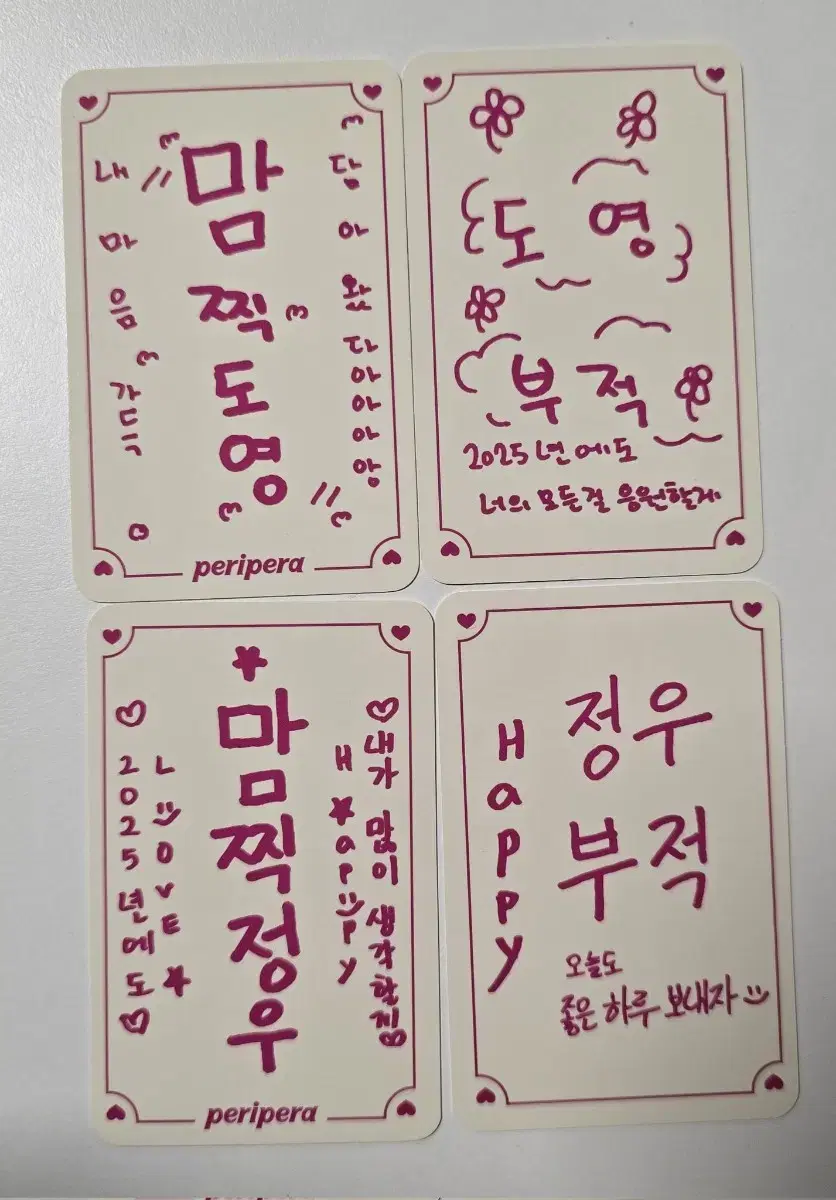 내 마음 가득
맘찍도영
담아왔다아아아앙
peripera
도영
부적
2025년에도
너의 모든걸 응원할게
2025년에도
LOVE
맘찍정우
Happy
내가 많이 생각할게
peripera
Happy
정우
부적
오늘도
좋은 하루 보내자